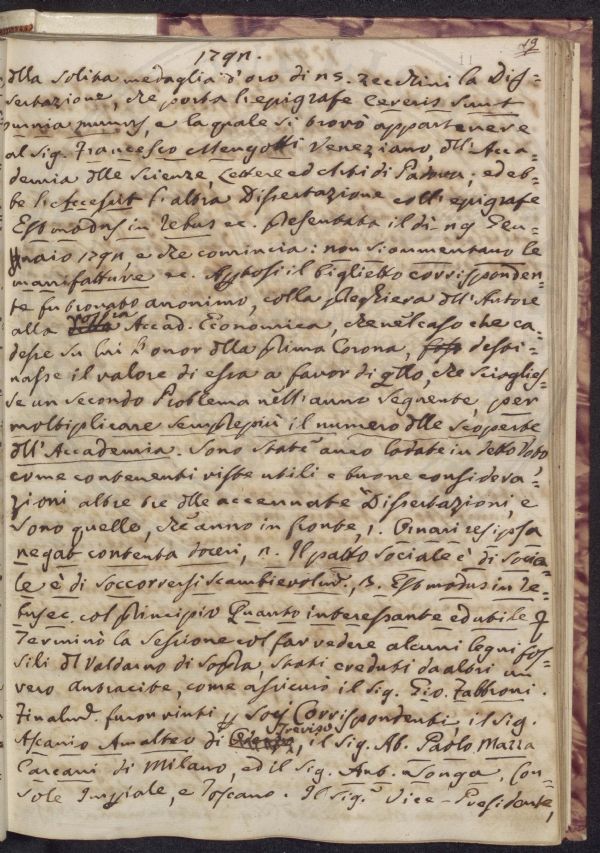 19
179n.
dlla solita medaglia d'oro di n5. zecchini la Dis=
sertazione, che porta l'epigrafe Cereris sunt
omnia munus, e la quale si trovò appartenere
al Sig. Francesco Mengotti Veneziano, dll'Acca=
demia dlle Scienze, Lettere ed Arti di Padova; ed eb=
be l'Accessit l'altra Dissertazione coll'epigrafe
Est modus in rebus ec. presentata il dì n9 Gen=
naio 179n, e che comincia: non si aumentano le
manifatture ec. Apertosi il biglietto corrisponden=
te fu trovato anonimo, colla preghiera dll'Autore
alla nostra Accad. Economica, che nel caso che ca=
desse su lui l'onor dlla prima Corona, desti=
nasse il valore di essa a favor di qllo, che scioglies=
se un secondo Problema nell'anno seguente, per
moltiplicare sempre più il numero dlle scoperte
dll'Accademia. Sono state anco lodate in detto Voto
come contenenti viste utili e buone considera=
zioni altre tre dlle accennate Dissertazioni, e
sono quelle, che anno in fronte, 1. Ornari res ipsa
negat contenta doceri, n. Il patto sociale è di socia=
le è di soccorrersi scambievolmẽ., 3. Est modus in re=
bus ec. col principio Quanto interessante ed utile
Terminò la sessione col far vedere alcuni legni fos=
sili dl Valdarno di sopra, stati creduti da altri un
vero antracite, come assicurò il Sig. Gio. Fabbroni.
Finalmẽ. furon vinti p Socj Corrispondenti, il Sig.
Ascanio Amalteo di Treviso, il Sig. Ab. Paolo Mazza
Carcani di Milano, ed il Sig. Ant. Songa, Con=
sole Impiale, e Toscano. Il Sig. Vice-Presidente,